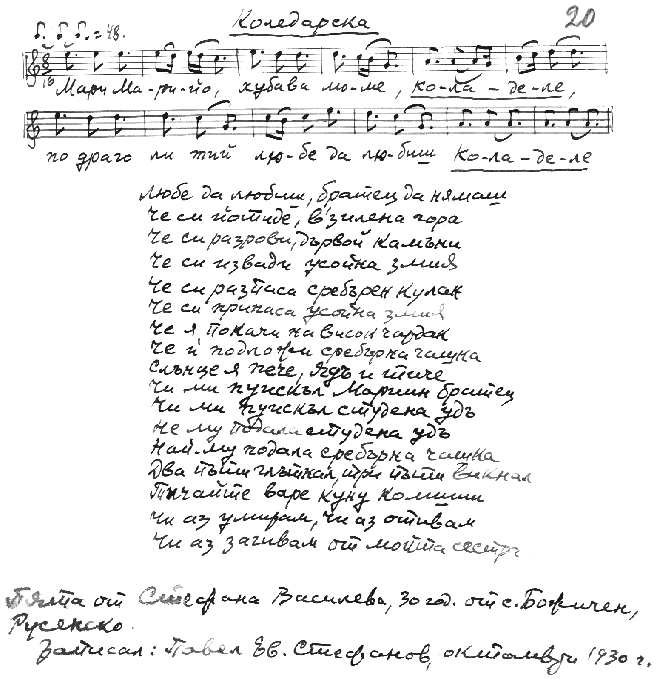 Коледарска
20
♪. ♪ ♪. = 48.
Мари Ма-ри-йо, хубава мо-ме, ко-ла-де-ле,
по драго ли тий лю-бе да лю-биш ко-ла-де-ле
любе да любиш, братец да нямаш
Че си йотиде, въ зилена гора
Че си разрови, дървой камъни
Че си извади усойна змия
Че си разпаса сребърен кулан
Че си припаса усойна змия
Че я покачи на висок чардак
Че й подложи сребърна чашка
Слънце я пече, ядъ и тиче
Чи ми пускъл Мариин братец
Чи ми пускъл студена удъ
Не му подала студена удъ
Най-му подала сребърна чашка
Два пъти глътнал, три пъти викнал
Тичайте варе куку комшии
Чи аз умирам, чи аз отивам
Чи аз загивам от мойта сестра
Пята от Стефана Василева, 30 год. от с. Божичен,
Русенско.
Записал: Павел Ев. Стефанов, октомври 1930 г.